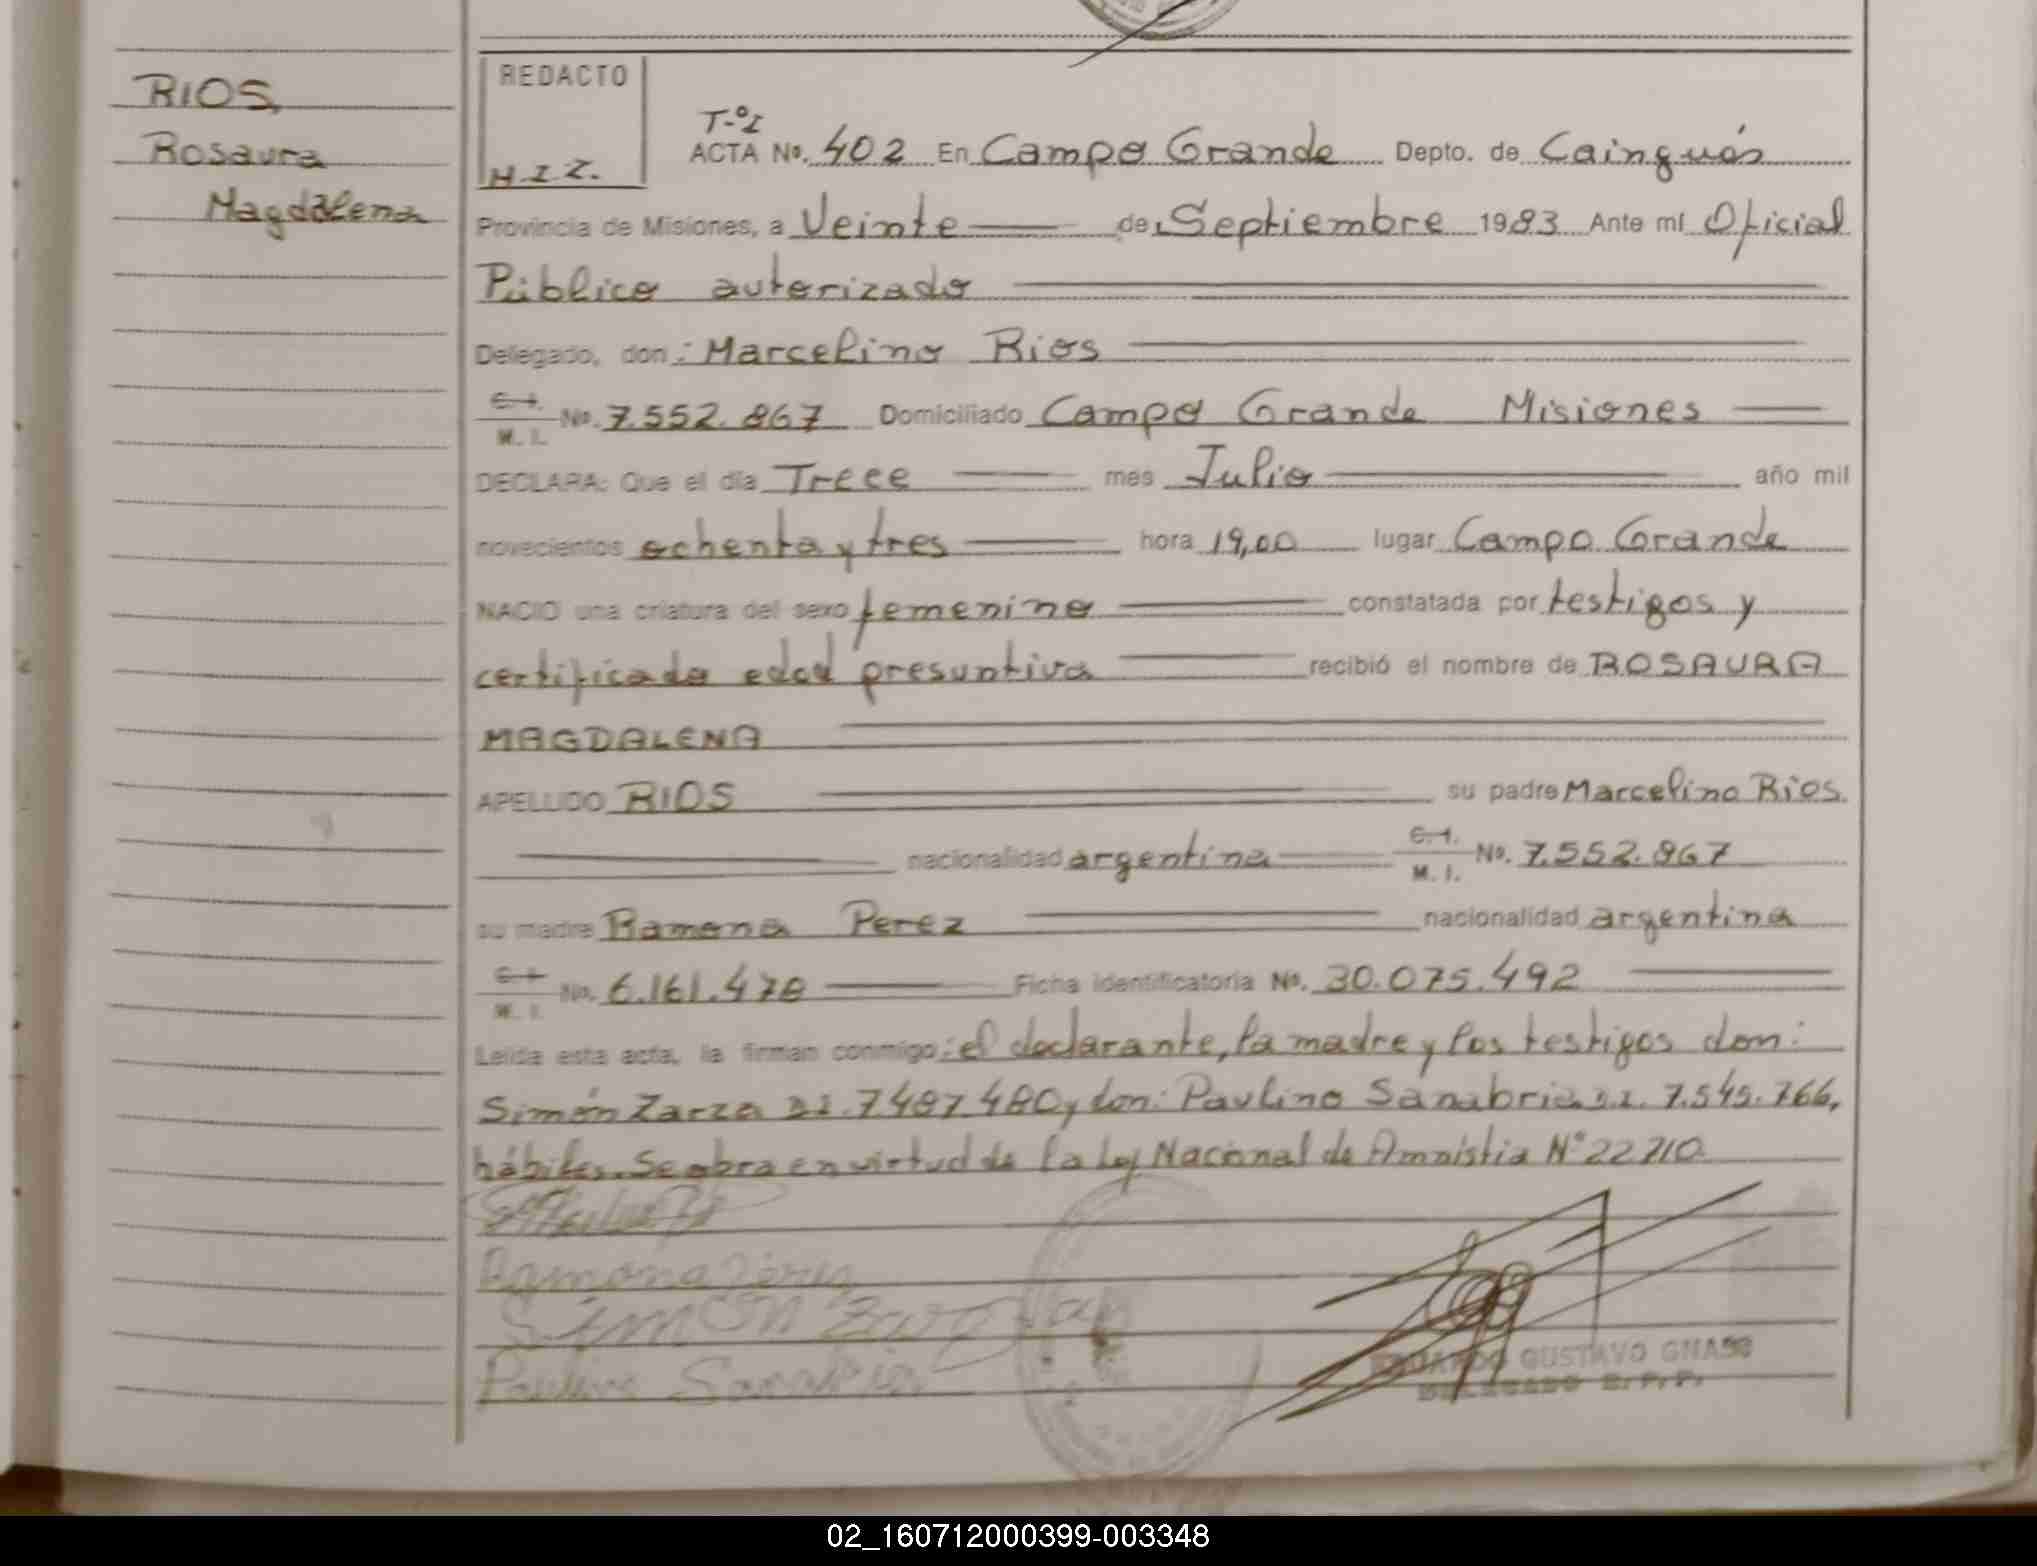 RIOS,
Rosaura
Magdalena
REDACTO
H.I.Z.
T-º I
ACTA Nº. 402 En Campo Grande Depto. de Cainguás
Provincia de Misiones, a Veinte de Septiembre 1983 Ante mí Oficial
Público autorizado
Delegado, don: Marcelino Rios
C.I. M.I. No. 7.552.867 Domiciliado Campo Grande Misiones
DECLARA: Que el día Trece mes Julio año mil
novecientos ochenta y tres hora 19,00 lugar Campo Grande
NACIO una criatura del sexo femenino constatada por testigos y
certificado edad presuntiva recibió el nombre de ROSAURA
MAGDALENA
APELLIDO RIOS su padre Marcelino Rios.
nacionalidad argentina C.I. M.I. No. 7.552.867
su madre Ramona Perez nacionalidad argentina
C.I. M.I. No. 6.161.478 Ficha identificatoria No. 30.075.492
Leída esta acta, la firman conmigo: el declarante, la madre y los testigos don:
Simón Zarza 7487.480, y don: Paulino Sanabria 7.545.766,
hábiles. Se obra en virtud de la Ley Nacional de Amnistia Nº 22710
Ramona Perez
Simon Zarza
Paulino Sanabria
GUSTAVO
DELEGADO R.P.P.
02_160712000399-003348